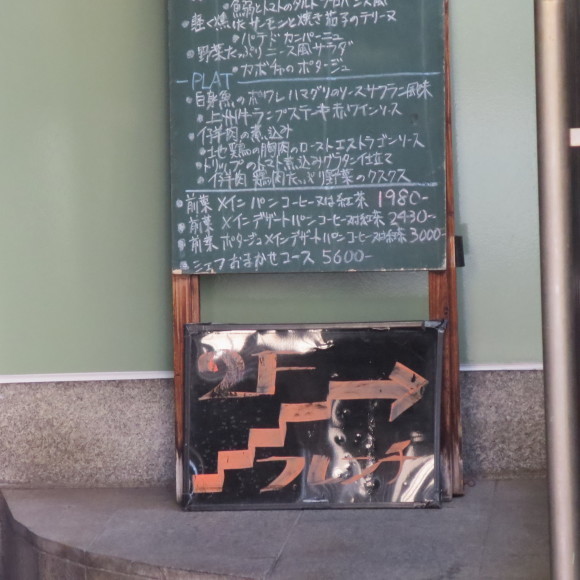 ・魚介とトマトのタルト プロバンス風
・軽く燻したサーモンと焼き茄子のテリーヌ
・パテドカンパーニュ
・野菜たっぷりニース風サラダ
・カボチャのポタージュ
PLAT
・白身魚のポワレ ハマグリのソース サフラン風味
・上州牛ランプステーキ赤ワインソース
・仔羊肉の煮込み
・地鶏の胸肉のロースト エストラゴンソース
・トリップのトマト煮込みグラタン仕立て
・仔羊肉 鶏肉 たっぷり野菜のクスクス
・前菜 メイン パン コーヒー又は紅茶 1980-
・前菜 メイン デザート パン コーヒー又は紅茶 2430-
・前菜 ポタージュ メイン デザート パン コーヒー又は紅茶 3000-
・シェフおまかせコース 5600-
2F
フレンチ